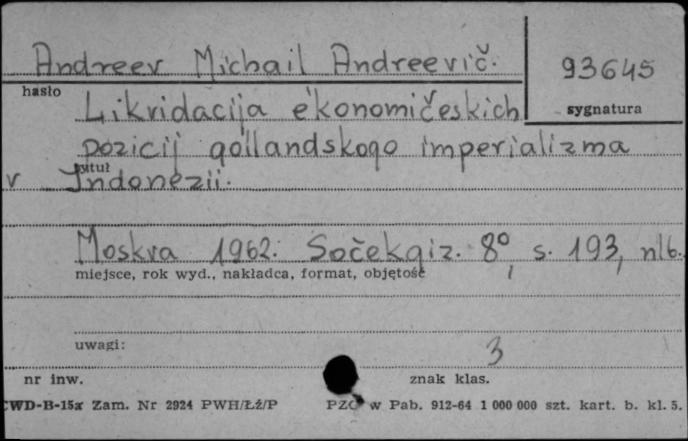 Andreev Michail Andreevič.
93645
hasło
sygnatura
Likvidacija ėkonomičeskich
pozicij gollandskogo imperializma
tytuł
v Indonezii.
Moskva 1962. Sočekgiz. 8°, s. 193, nlb.
miejsce, rok wyd., nakładca, format, objętość
uwagi:
3
nr inw.
znak klas.
CWD-B-15a Zam. Nr 2924 PWH/Łź/P
PZG w Pab. 912-64 1 000 000 szt. kart. b. kl. 5.